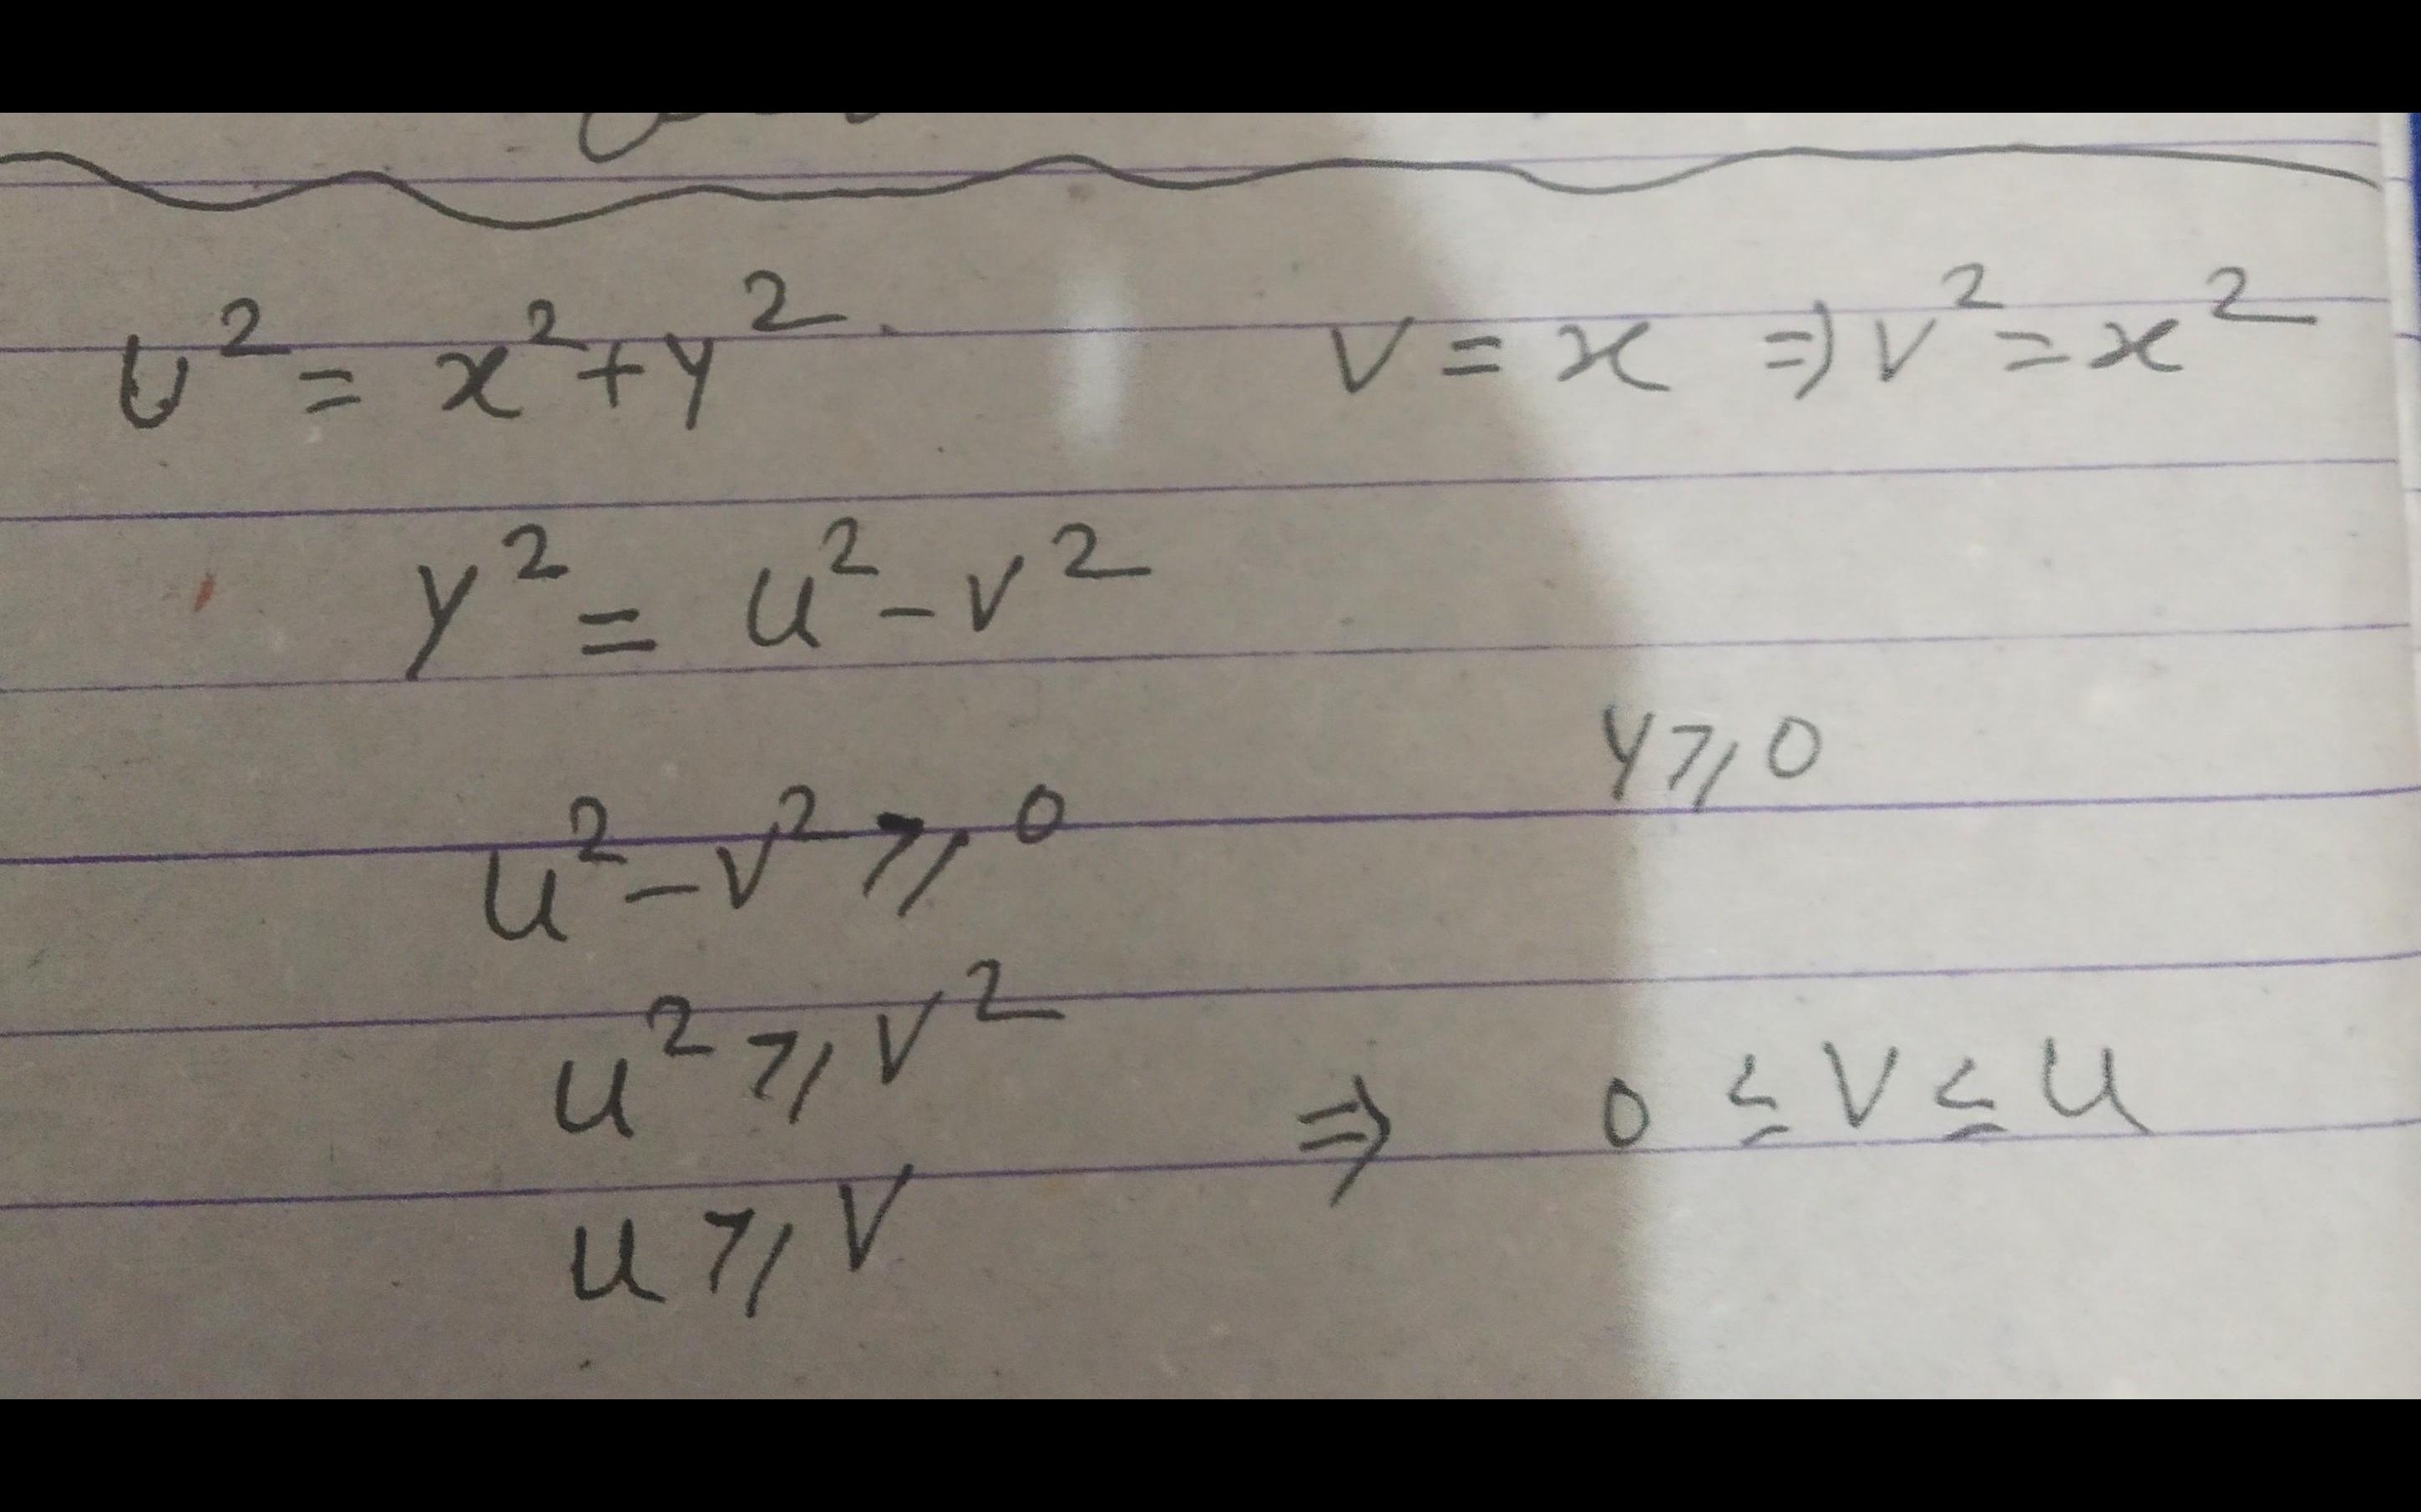 u² = x² + y² v = x ⇒ v² = x²
y² = u² - v²
y ⩾ 0
u² - v² ⩾ 0
u² ⩾ v²
⇒ 0 ≤ v ≤ u
u ⩾ v